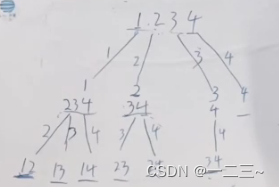 1 2 3 4
1 2 3 4
1 2 3 4
234 34 4 —
2 3 4 3 4 4
12 13 14 23 24 34
CSDN @一二三~